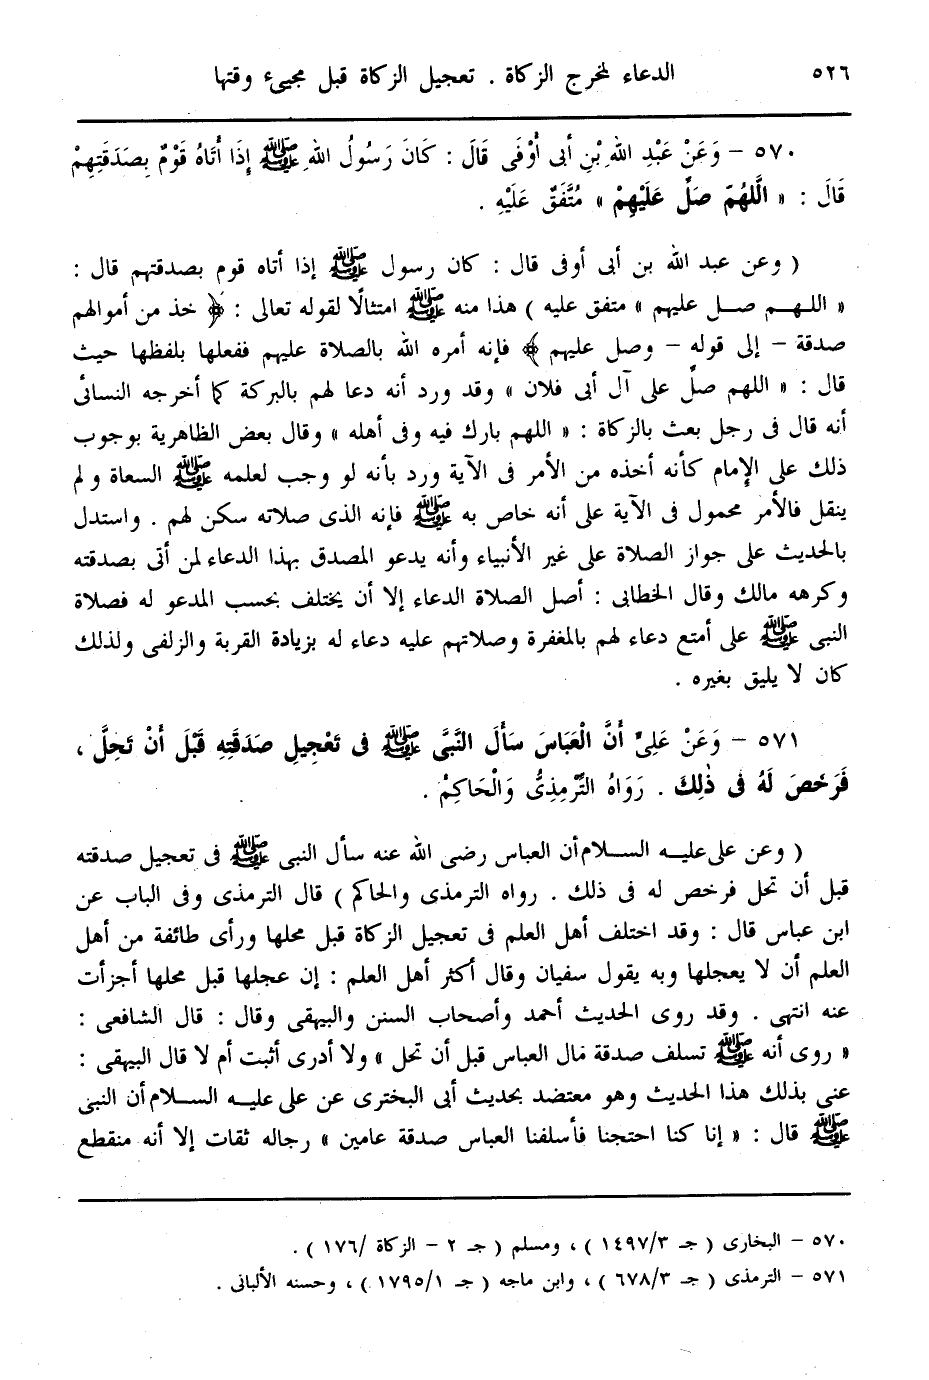 ٥٢٦ الدعاء لمخرج الزكاة . تعجيل الزكاة قبل مجيىء وقتها
٥٧٠ – وَعَنْ عَبْدِ اللهِ بْنِ أبى أَوْفَى قَالَ : كَانَ رَسُولُ اللهِ ﷺ إِذَا أَتَاهُ قَوْمٌ بِصَدَقَتِهِمْ
قَالَ : « الَّلهُمّ صَلِّ عَلَيْهِمْ » مُتَّفَقٌ عَلَيْهِ .
( وعن عبد الله بن أبى أوفى قال : كان رسول ﷺ إذا أتاه قوم بصدقتهم قال :
« اللـهـم صـل عليهم » متفق عليه ) هذا منه ﷺ امتثالًا لقوله تعالى : ﴿ خذ من أموالهم
صدقة – إلى قوله – وصل عليهم ﴾ فإنه أمره الله بالصلاة عليهم ففعلها بلفظها حيث
قال : « اللهم صلِّ على آل أبى فلان » وقد ورد أنه دعا لهم بالبركة كما أخرجه النسائى
أنه قال فى رجل بعث بالزكاة : « اللهم بارك فيه وفى أهله » وقال بعض الظاهرية بوجوب
ذلك على الإمام كأنه أخذه من الأمر فى الآية ورد بأنه لو وجب لعلمه ﷺ السعاة ولم
ينقل فالأمر محمول فى الآية على أنه خاص به ﷺ فإنه الذى صلاته سكن لهم . واستدل
بالحديث على جواز الصلاة على غير الأنبياء وأنه يدعو المصدق بهذا الدعاء لمن أتى بصدقته
وكرهه مالك وقال الخطابى : أصل الصلاة الدعاء إلا أن يختلف بحسب المدعو له فصلاة
النبى ﷺ على أمتع دعاء لهم بالمغفرة وصلاتهم عليه دعاء له بزيادة القربة والزلفى ولذلك
كان لا يليق بغيره .
٥٧١ – وَعَنْ عَلِىٍّ أَنَّ الْعَبَاسَ سَأَلَ النَّبَّى ﷺ فى تَعْجِيلِ صَدَقَتِهِ قَبْلَ أَنْ تَحِلَّ ،
فَرَخَصَ لَهُ فى ذٰلِكَ . رَوَاهُ التِّرْمِذِىُّ وَالْحَاكِمْ .
( وعن على عليـه السـلام أن العباس رضى الله عنه سأل النبى ﷺ فى تعجيل صدقته
قبل أن تحل فرخص له فى ذلك . رواه الترمذى والحاكم ) قال الترمذى وفى الباب عن
ابن عباس قال : وقد اختلف أهل العلم فى تعجيل الزكاة قبل محلها ورأى طائفة من أهل
العلم أن لا يعجلها وبه يقول سفيان وقال أكثر أهل العلم : إن عجلها قبل محلها أجزأت
عنه انتهى . وقد روى الحديث أحمد وأصحاب السنن والبيهقى وقال : قال الشافعى :
« روى أنه ﷺ تسلف صدقة مال العباس قبل أن تحل » ولا أدرى أثبت أم لا قال البيهقى :
عنى بذلك هذا الحديث وهو معتضد بحديث أبى البخترى عن على عليـه السـلام أن النبى
ﷺ قال : « إنا كنا احتجنا فأسلفنا العباس صدقة عامين » رجاله ثقات إلا أنه منقطع
٥٧٠ – البخارى ( جـ ١٤٩٧/٣ ) ، ومسلم ( جـ ٢ – الزكاة /١٧٦ ) .
٥٧١ – الترمذى ( جـ ٦٧٨/٣ ) ، وابن ماجه ( جـ ١٧٩٥/١ ) ، وحسنه الألبانى .